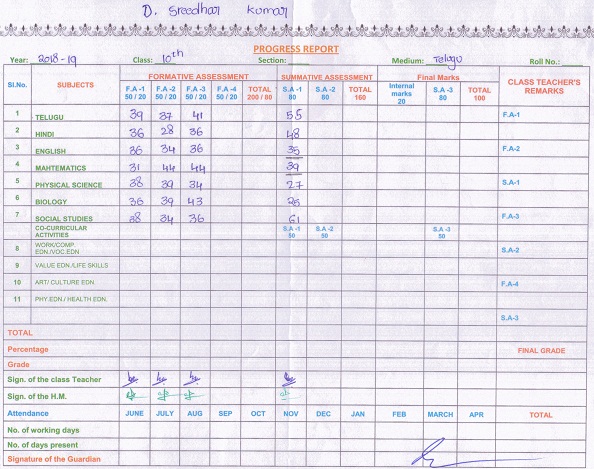 D. Sreedhar Kumar
PROGRESS REPORT
Year: 2018-19 Class: 10th Section: Medium: Telugu Roll No.:
Sl.No. SUBJECTS FORMATIVE ASSESSMENT SUMMATIVE ASSESSMENT Final Marks CLASS TEACHER'S REMARKS
F.A -1 50 / 20 F.A -2 50 / 20 F.A -3 50 / 20 F.A -4 50 / 20 TOTAL 200 / 80 S.A -1 80 S.A -2 80 TOTAL 160 Internal marks 20 S.A -3 80 TOTAL 100
1 TELUGU 39 37 41 55 F.A-1
2 HINDI 36 28 36 48
3 ENGLISH 36 34 36 35 F.A-2
4 MAHTEMATICS 31 44 44 39
5 PHYSICAL SCIENCE 38 39 34 27 S.A-1
6 BIOLOGY 36 39 43
7 SOCIAL STUDIES 38 34 36 61 F.A-3
CO-CURRICULAR ACTIVITIES S.A -1 50 S.A -2 50 S.A -3 50
8 WORK/COMP. EDN./VOC.EDN S.A-2
9 VALUE EDN./LIFE SKILLS
10 ART/ CULTURE EDN F.A-4
11 PHY.EDN / HEALTH EDN.
S.A-3
TOTAL
Percentage FINAL GRADE
Grade
Sign. of the class Teacher
Sign. of the H.M.
Attendance JUNE JULY AUG SEP OCT NOV DEC JAN FEB MARCH APR TOTAL
No. of working days
No. of days present
Signature of the Guardian